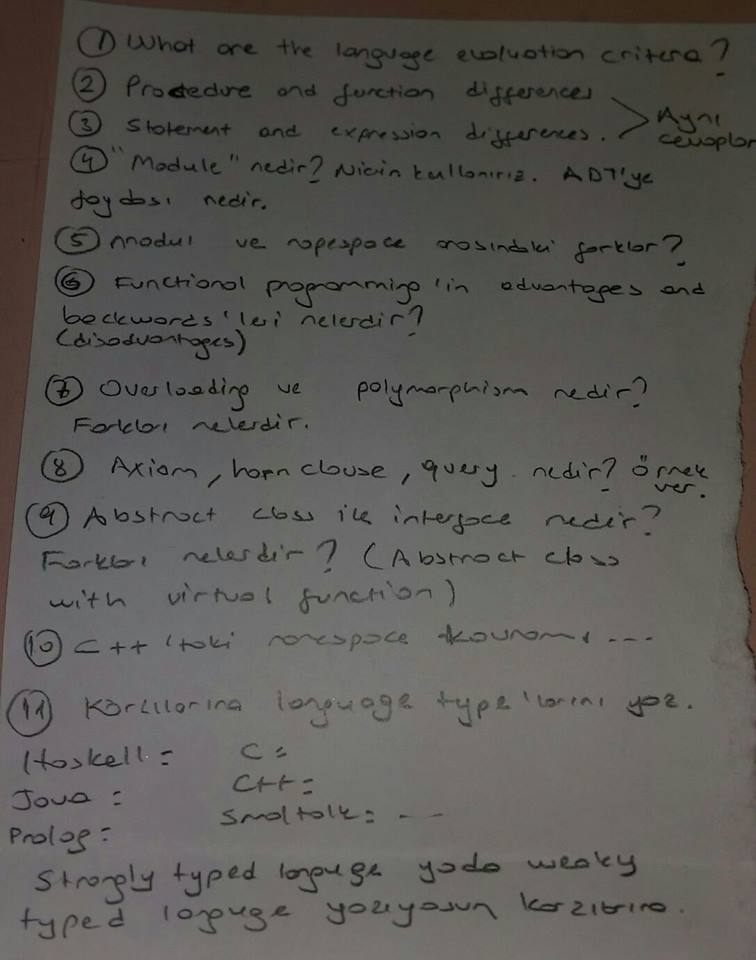 ① What are the language evaluation critera?
② Procedure and function differences
③ Statement and expression differences. > Aynı cevaplar
④ "Module" nedir? Niçin kullanırız. ADT'ye
faydası nedir.
⑤ modul ve napespace arasındaki farklar?
⑥ Functional programming'in advantages and
backwords'leri nelerdir?
(disadvantages)
⑦ Overloading ve polymorphism nedir?
Farkları nelerdir.
⑧ Axiom, horn clause, query nedir? Örnek ver.
⑨ Abstract class ile interface nedir?
Farkları nelerdir? (Abstract class
with virtual function)
⑩ C++'taki namespace kavramı ---
⑪ Karşılarına language type'larını yaz.
Haskell = C =
Java = C++ =
Prolog = Smaltalk = ---
Strongly typed languge yada weaky
typed languge yazıyosun karşılarına.